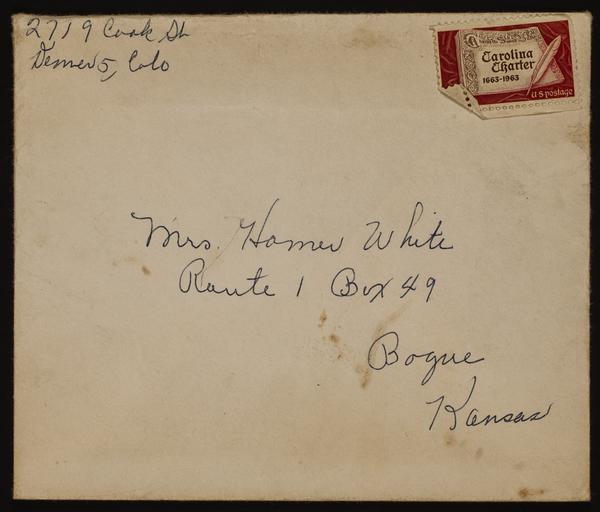 2719 Cook St
Denver 5, Colo
Carolina
Charter
1663-1963
U·S postage
Mrs. Homer White
Route 1 Box 49
Bogue
Kansas